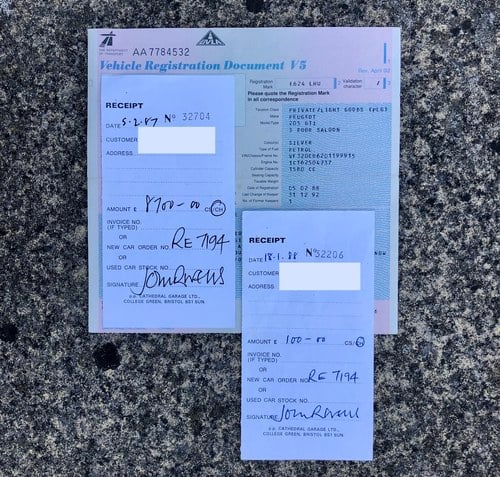 THE DEPARTMENT
OF TRANSPORT
AA 7784532
DVLA
Vehicle Registration Document V5
Rev. April 92
Registration
Mark
E624 LHU
Validation
character
Please quote the Registration Mark
in all correspondence
Taxation Class PRIVATE/LIGHT GOODS (PLG)
Make PEUGEOT
Model/Type 205 GTI
3 DOOR SALOON
Colour(s) SILVER
Type of Fuel PETROL
VIN/Chassis/Frame No.
Engine No.
Cylinder Capacity 1580 CC
Seating Capacity
Taxable Weight
Date of Registration 05 02 88
Last Change of Keeper 31 12 92
No. of Former Keepers
RECEIPT
DATE 5.2.87 No 32704
CUSTOMER
ADDRESS
AMOUNT £ 8700-00 CS/CH
INVOICE NO.
(IF TYPED)
OR
NEW CAR ORDER NO. RE 7194
OR
USED CAR STOCK NO.
SIGNATURE
p.p. CATHEDRAL GARAGE LTD.,
COLLEGE GREEN, BRISTOL BS1 5UN.
RECEIPT
DATE 18.1.88 No 32206
CUSTOMER
ADDRESS
AMOUNT £ 100-00 CS/CH
INVOICE NO.
(IF TYPED)
OR
NEW CAR ORDER NO. RE 7194
OR
USED CAR STOCK NO.
SIGNATURE
p.p. CATHEDRAL GARAGE LTD.,
COLLEGE GREEN, BRISTOL BS1 5UN.